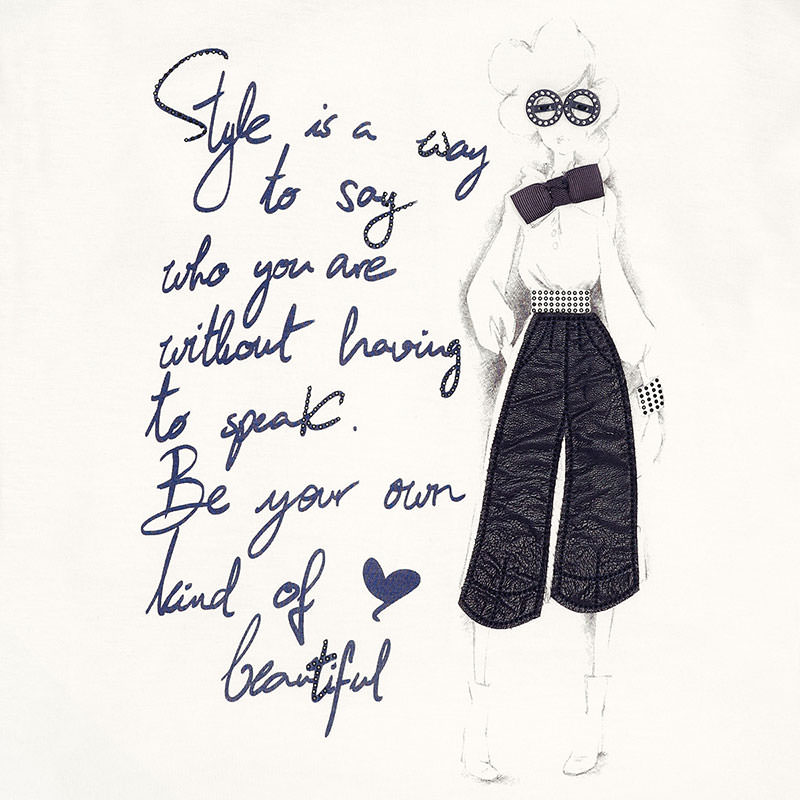 Style is a way
to say
who you are
without having
to speak.
Be your own
kind of
beautiful